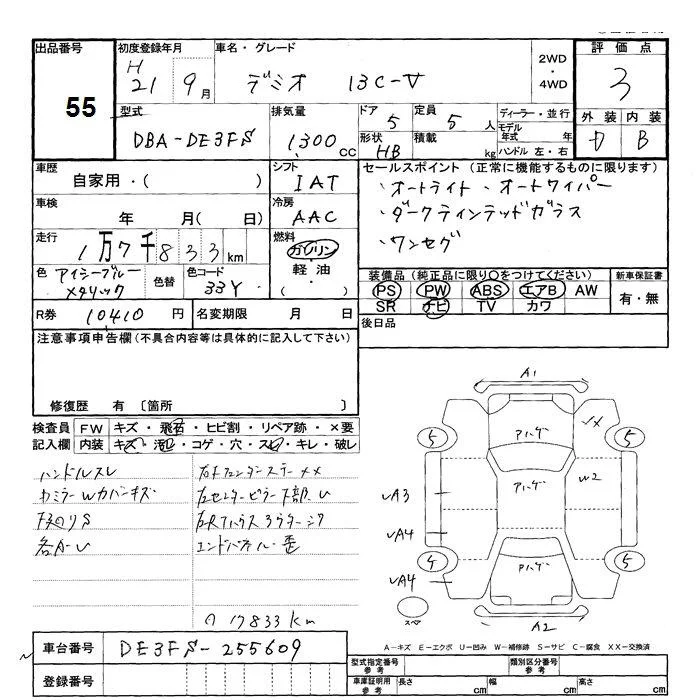 出品番号 初度登録年月 車名・グレード 2WD・4WD 評価点
55 H 21 9月 デミオ 13C-V 3
型式 排気量 ドア 定員 ディーラー・並行 外装 内装
DBA-DE3FS 1300cc 5 5人 モデル年式 年 D B
形状 積載 HB kg ハンドル 左・右
車歴 シフト セールスポイント (正常に機能するものに限ります)
自家用・( ) IAT ・オートライト ・オートワイパー
車検 冷房 ・ダークティンテッドガラス
年 月( 日) AAC ・ワンセグ
走行 燃料
1万7千833km ガソリン・軽油・( )
色 色替 色コード 装備品 (純正品に限り○をつけてください) 新車保証書
アイシーブルーメタリック 33Y PS PW ABS エアB AW 有・無
SR ナビ TV カワ
R券 10410円 名変期限 月 日 後日品
注意事項申告欄 (不具合内容等は具体的に記入して下さい)
修復歴 有 〔箇所
検査員記入欄 FW キズ・飛石・ヒビ割・リペア跡・×要
内装 キズ・汚レ・コゲ・穴・スレ・キレ・破レ
ハンドルスレ
カミラーWカバーキズ
下廻りS
各A-U
エンドパネル 歪
17833km
A1
5 アハゲ 5
アハゲ W2
A3
A4
4 アハゲ 5
A4
スペ A2
車台番号 DE3FS-255609
登録番号
A-キズ E-エクボ U-凹み W-補修跡 S-サビ C-腐食 XX-交換済
型式指定番号 参考 類別区分番号 参考
車庫証明用 参考 長さ cm 幅 cm 高さ cm